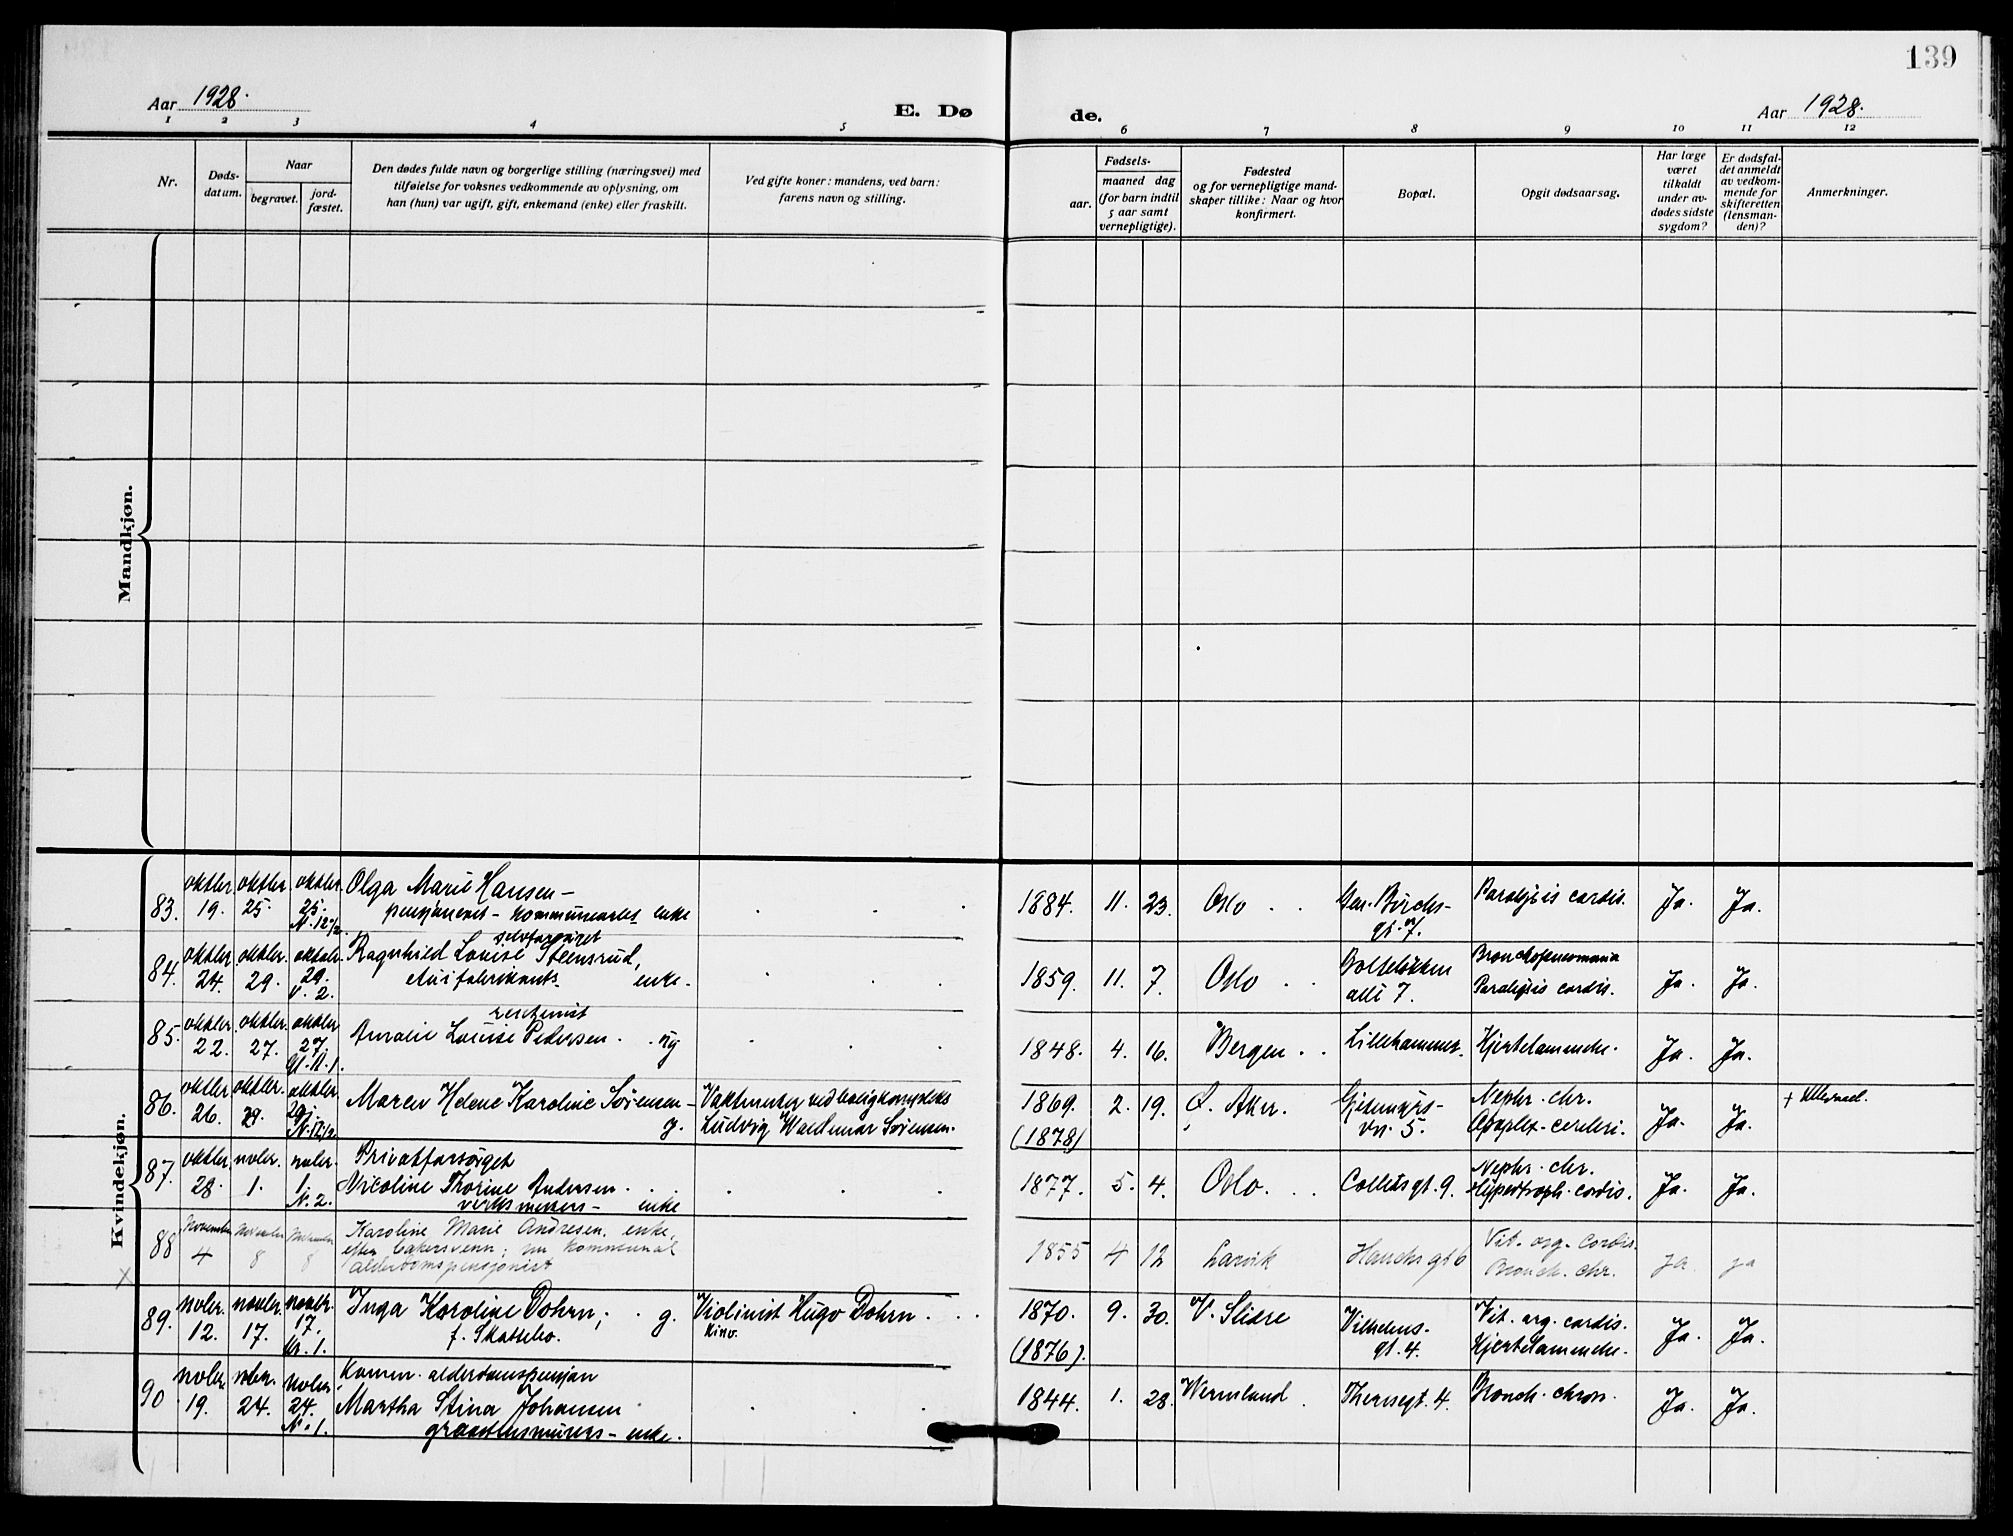 139
Aar 1928.
E. Dø
de.
Aar 1928.
1 2 3 4 5 6 7 8 9 10 11 12
Nr.
Døds-
datum.
Naar
begravet.
jord-
fæstet.
Den dødes fulde navn og borgerlige stilling (næringsvei) med
tilføielse for voksnes vedkommende av oplysning, om
han (hun) var ugift, gift, enkemand (enke) eller fraskilt.
Ved gifte koner: mandens, ved barn:
farens navn og stilling.
Fødsels-
aar.
maaned dag
(for barn indtil
5 aar samt
vernepligtige).
Fødested
og for vernepligtige mand-
skaper tillike: Naar og hvor
konfirmert.
Bopæl.
Opgit dødsaarsag.
Har læge
været
tilkaldt
under av-
dødes sidste
sygdom?
Er dødsfal-
det anmeldt
av vedkom-
mende for
skifteretten
(lensman-
den)?
Anmerkninger.
Mandkjøn.
Kvindekjøn.
83. oktbr. 19. oktbr. 25. oktbr. 25. N. 12/2.
Olga Marie Hansen –
enke
1884. 11. 23. Oslo
gt. 7.
Paralysis cordis. Ja. Ja.
84. oktbr. 24. oktbr. 29. oktbr. 29. V. 2.
Ragnhild Louise Steensrud,
enke.
1859. 11. 7. Oslo
alle 7.
Bronchopneumonia
Paralysis cordis. Ja. Ja.
85. oktbr. 22. oktbr. 27. oktbr. 27.
Amalie Louise Pedersen.
1848. 4. 16. Bergen
Lillehammer. Hjertelammelse. Ja. Ja.
86. oktbr. 26. oktbr. 29. oktbr. 29. N. 12/2
Maren Helene Karoline Sørensen – g.
Vaktmester ved boligkompleks
Ludvig Waldemar Sørensen.
1869. (1878) 2. 19. Ø. Aker.
vn. 5.
Nephr. chr.
Apoplex. cerebri. Ja. Ja.
+ Ullevaal.
87. oktbr. 28. novbr. 1. novbr. 1. N. 2.
Privatforsørget
Nicoline Thorine Andersen.
verksmesters – enke
1877. 5. 4. Oslo.
Colletsgt. 9.
Nephr. chr.
Hypertroph. cordis. Ja. Ja.
88 November 4 November 8 November 8
Karoline Marie Andresen, enke
efter bakersvenn; nu kommunal
alderdomspensjonist
1855 4 12 Larvik
Vit. org. cordis.
Bronch. chr. ja ja
89. novbr. 12. novbr. 17. novbr. 17.
Inga Karoline Dohrn; g.
f. Skattebo.
Violinist Hugo Dohrn
kino.
1870. (1876). 9. 30. V. Slidre
Vilhelms-
gt. 4.
Vit. org. cordis.
Hjertelammelse. Ja. Ja.
90 novbr. 19. novbr. 24. novbr. 24. N. 1.
Komm. alderdomspensjon
Martha Stina Johansen
graastensmurers – enke.
1844. 1. 28. Wermland
Theresgt. 4. Bronch. chron. Ja. Ja.